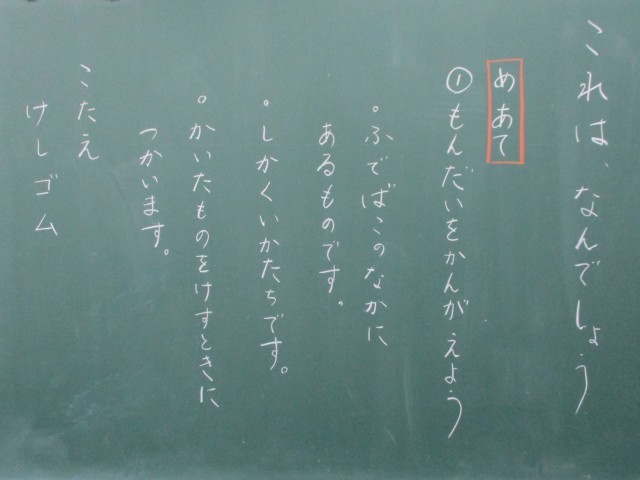 これは、なんでしょう
めあて
①もんだいをかんがえよう
・ふでばこのなかに
あるものです。
・しかくいかたちです。
・かいたものをけすときに
つかいます。
こたえ
けしゴム